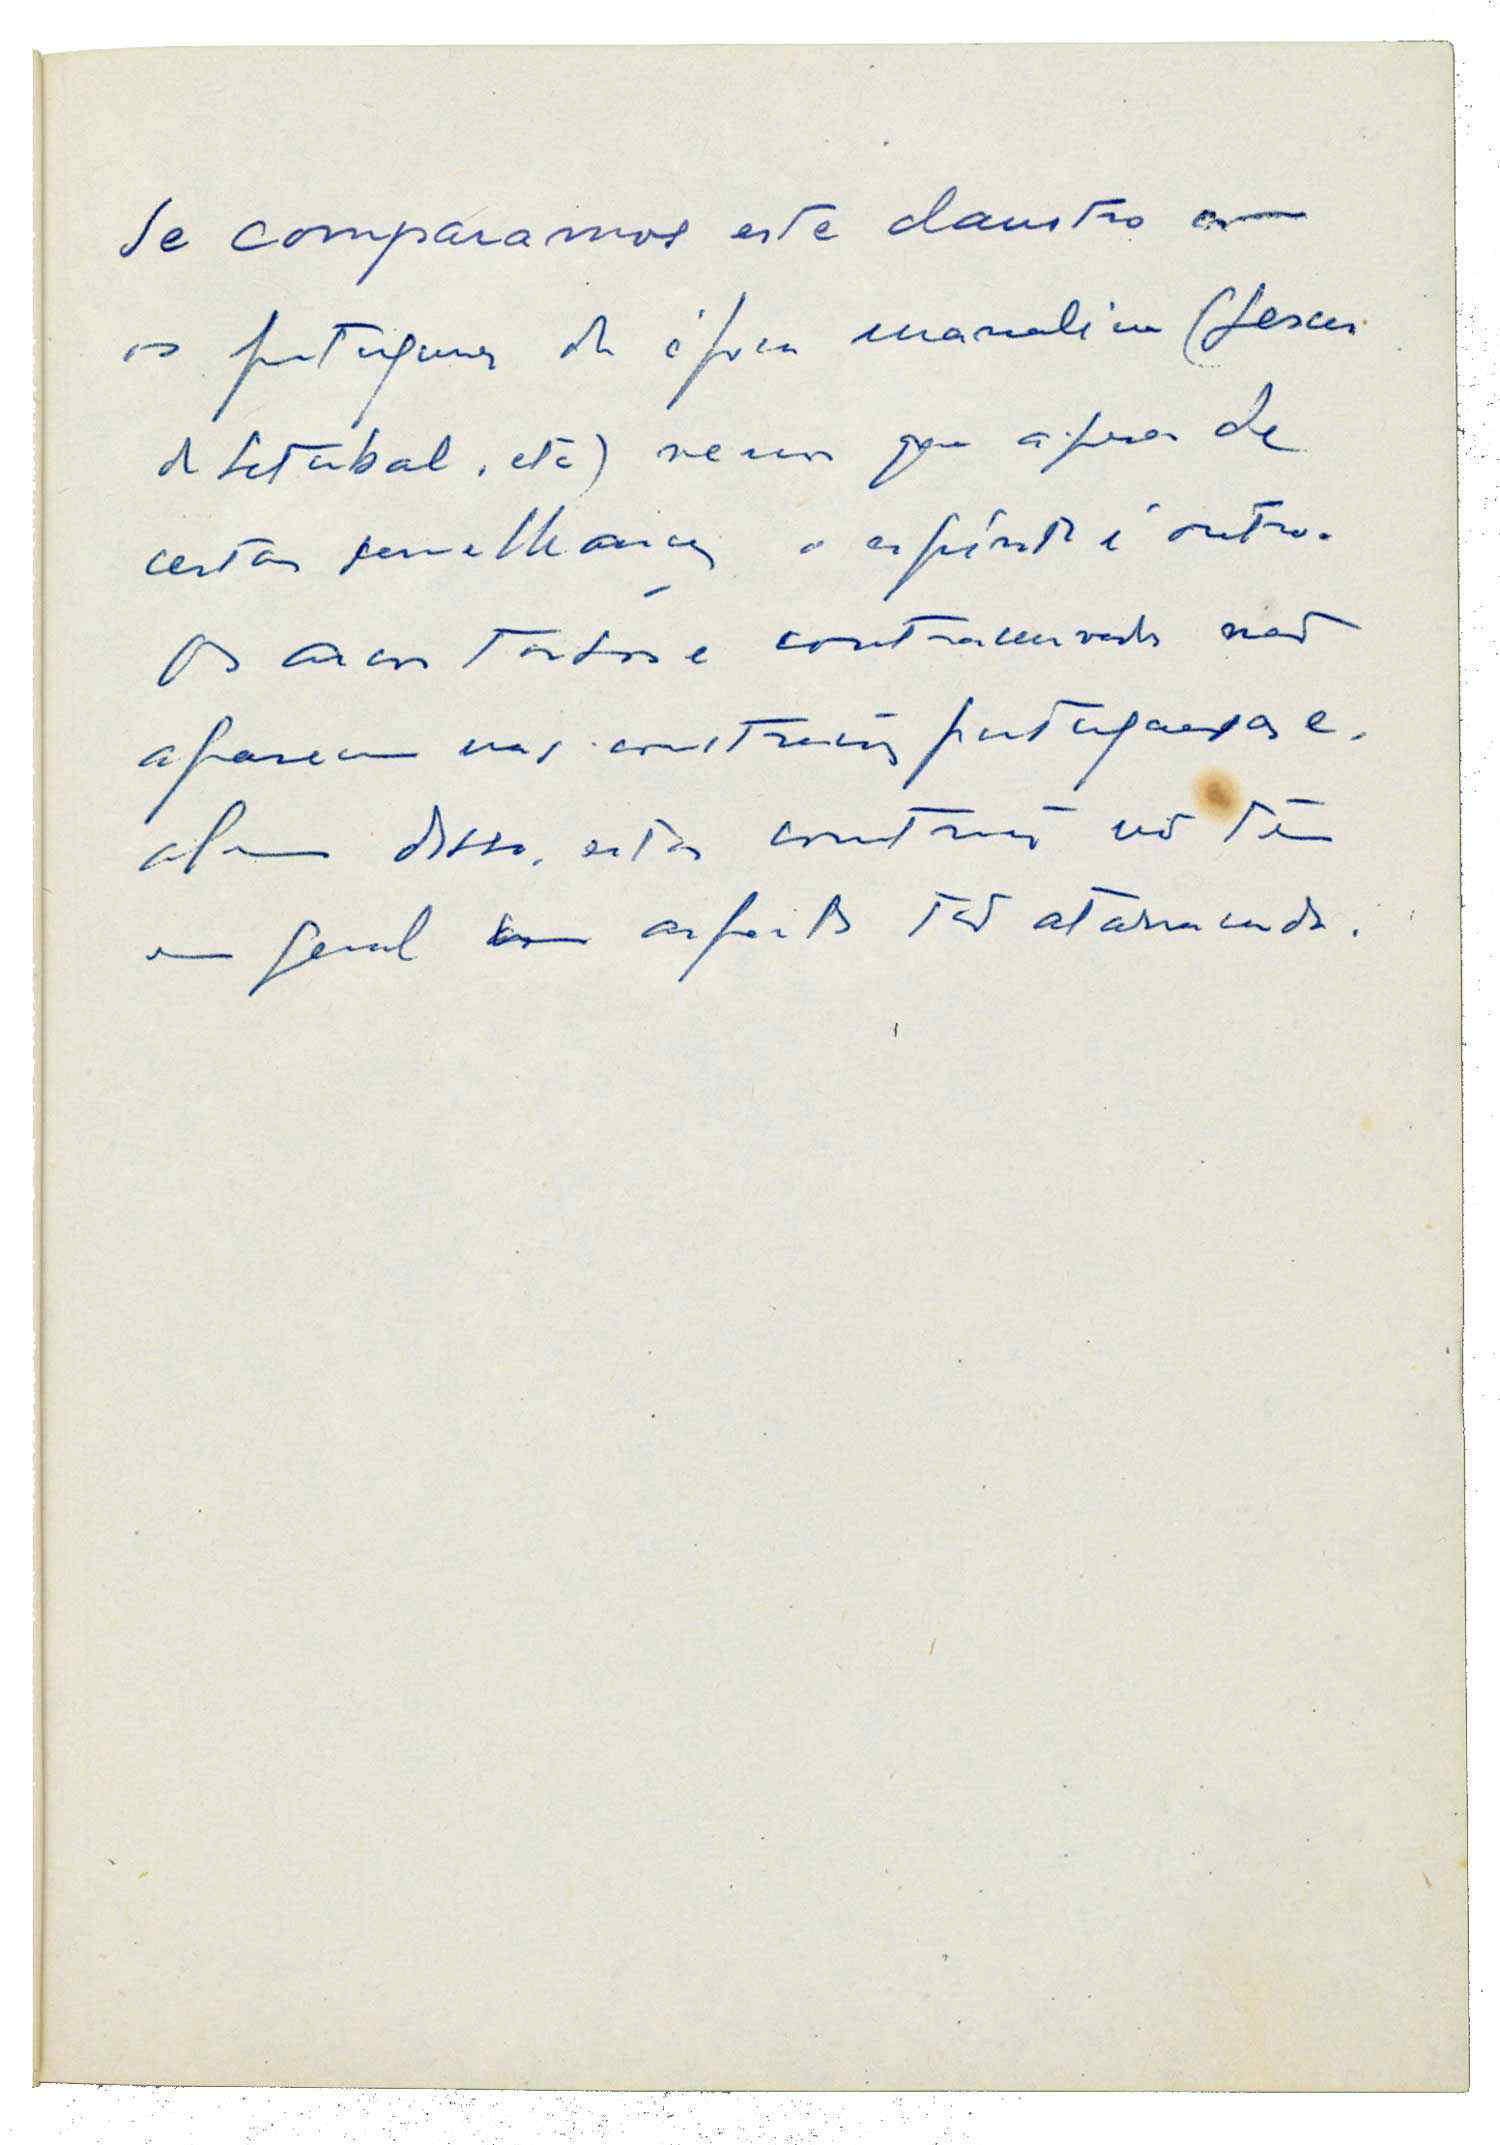 Se comparamos este claustro com
os portugueses da época manuelina (Jesus
de Setubal, etc) vemos que apesar de
certas semelhanças o espírito é outro.
Os arcos torsos e contracurvados não
aparecem nas construções portuguesas e,
alem disso, estas construções não têm
em geral um aspecto tão atarracado.